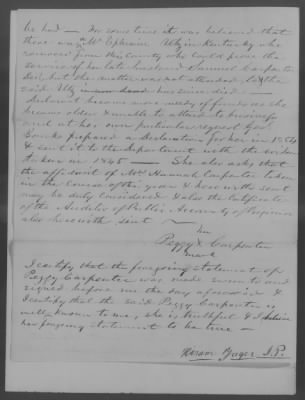 he had — For some time it was believed that
there was Mr Ephraim Utz in Kentucky who
removed from this County who could prove the
service of her late husband Samuel Carpenter
but the matter was not attended to & the
said Utz has since died —
declarant became more needy of funds as she
became older & unable to attend to business
and at her own
prepared a declaration for her in 1854
& sent it to the Department with the evidence
taken in 1845 — She also asks that
the affidavit of Mrs Hannah Carpenter taken
in the course of this year & herewith sent
may be duly considered & also the Certificate
of the Auditor of Public Accounts of Virginia
also herewith sent —
her
Peggy X Carpenter
mark
I certify that the foregoing statement of
Peggy Carpenter was made sworn to and
signed before me on the day aforesaid &
I certify that the said Peggy Carpenter is
well known to me, she is truthful & I believe
her foregoing statement to be true —
Hiram Yager J.P.